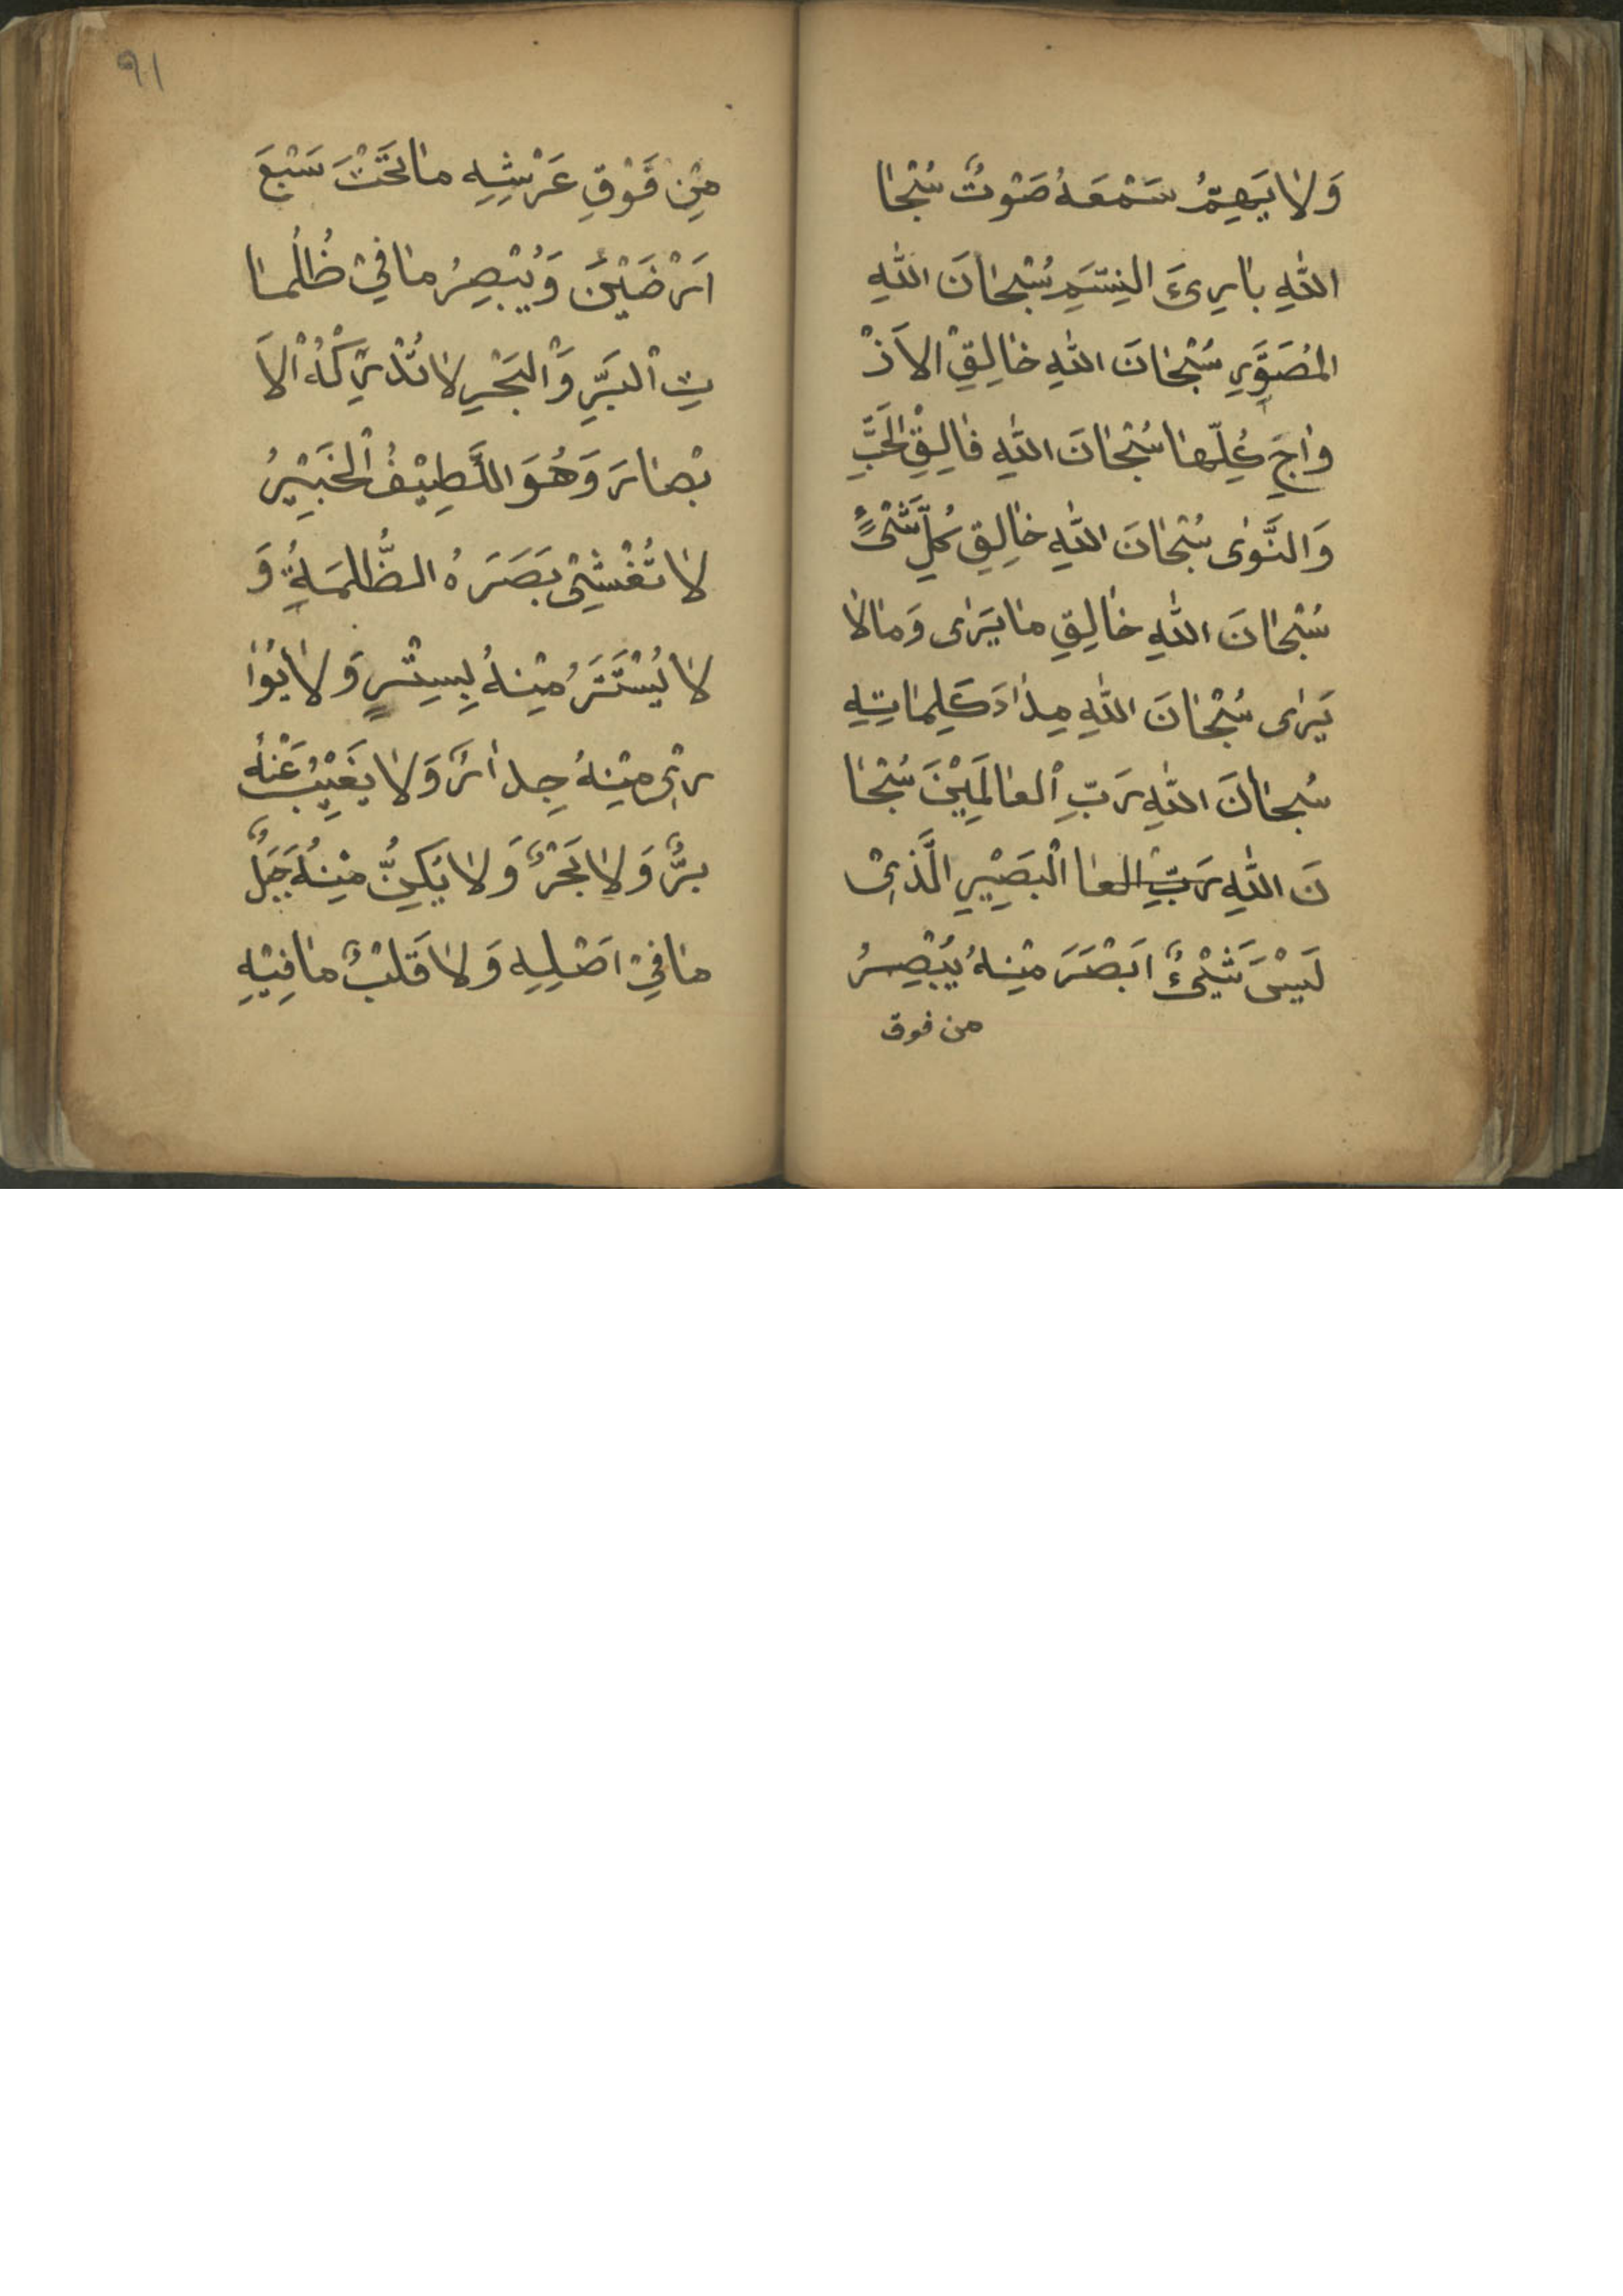 وَلَا يَصِمُّ سَمْعَهُ صَوْتٌ سُبْحَا
اللّٰهِ بَارِئِ النَّسَمِ سُبْحَانَ اللّٰهِ
المُصَوِّرِ سُبْحَانَ اللّٰهِ خَالِقِ الاَزْ
وَاجِ كُلِّهَا سُبْحَانَ اللّٰهِ فَالِقِ الْحَبِّ
وَالنَّوٰى سُبْحَانَ اللّٰهِ خَالِقِ كُلِّ شَیْءٍ
سُبْحَانَ اللّٰهِ خَالِقِ مَا يَرٰى وَمَا لَا
يَرٰى سُبْحَانَ اللّٰهِ مِدَادَ كَلِمَاتِهِ
سُبْحَانَ اللّٰهِ رَبِّ الْعَالَمِيْنَ سُبْحَا
نَ اللّٰهِ رَبِّ العا الْبَصِيْرِ الَّذِیْ
لَيْسَ شَيْئٌ اَبْصَرَ مِنْهُ يُبْصِرُ
من فوق
٩١
مِنْ فَوْقِ عَرْشِهِ مَا تَحْتَ سَبْعَ
اَرْضَيْنَ وَيُبْصِرُ مَا فِيْ ظُلُمَا
تِ الْبَرِّ وَالْبَحْرِ لَا تُدْرِكُهُ الْاَ
بْصَارَ وَهُوَ اللَّطِيْفُ الْخَبِيْرُ
لَا تُغْشِیْ بَصَرَهُ الظُّلمَةُ وَ
لَا يُسْتَتَرُ مِنْهُ بِسِتْرٍ وَلَا يُوَا
رِیْ مِنْهُ جِدَارٌ وَلَا يَغِيْبُ عَنْهُ
بَرٌّ وَلَا بَحْرٌ وَلَا يَكِنُّ مِنْهُ جَبَلٌ
مَا فِيْ اَصْلِهِ وَلَا قَلْبٌ مَا فِيْهِ